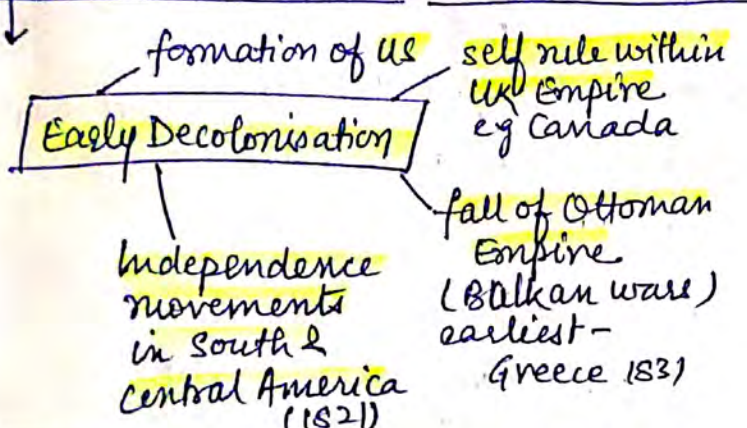 formation of US
self rule within
UK Empire
eg Canada
Early Decolonisation
fall of Ottoman
Empire
(Balkan wars)
earliest -
Greece 1831
Independence
movements
in South &
Central America
(1821)